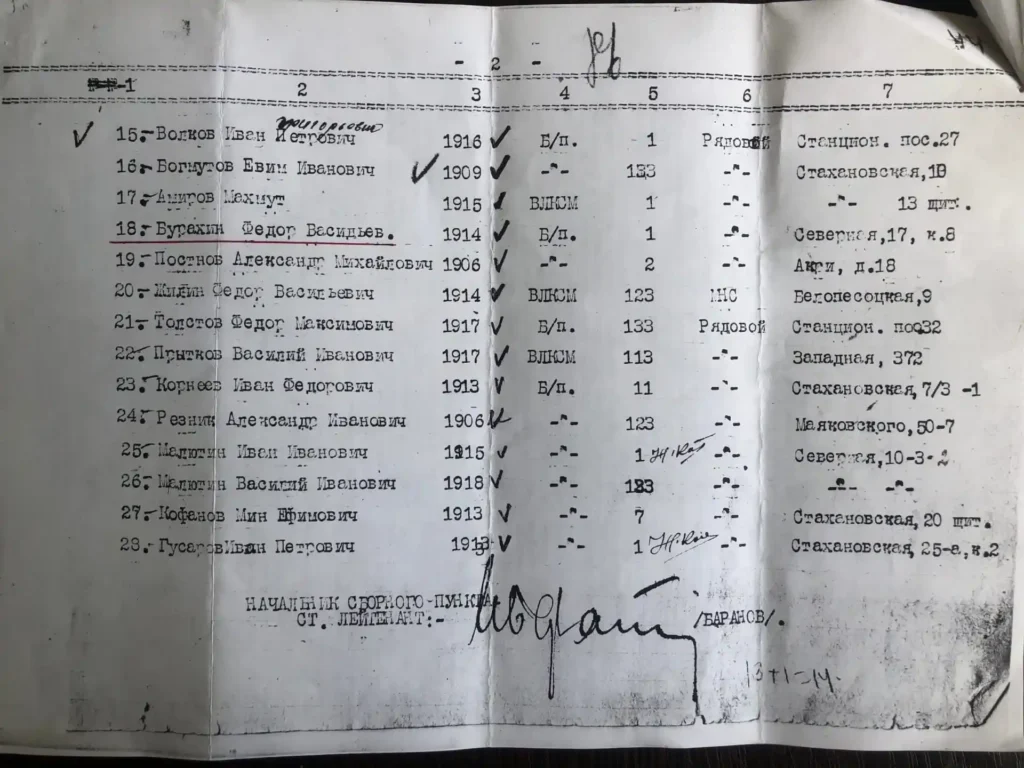 - 2 -
1 2 3 4 5 6 7
15.- Волков Иван Петрович Григорьевич 1916 Б/п. 1 Рядовой Станцион. пос.27
16.- Богмутов Евим Иванович 1909 -"- 133 -"- Стахановская,1
17.- Амиров Махмут 1915 ВЛКСМ 1 -"- -"- 13 щит.
18.- Бурахин Федор Васидьев. 1914 Б/п. 1 -"- Северная,17, к.8
19.- Постнов Александр Михайлович 1906 -"- 2 -"- д.18
20.- Жилин Федор Васильевич 1914 ВЛКСМ 123 МНС Белопесоцкая,9
21.- Толстов Федор Максимович 1917 Б/п. 133 Рядовой Станцион. пос32
22.- Прытков Василий Иванович 1917 ВЛКСМ 113 -"- Западная, 372
23.- Корнеев Иван Федорович 1913 Б/п. 11 -"- Стахановская,7/3 -1
24.- Резник Александр Иванович 1906 -"- 123 -"- Маяковского,50-7
25.- Малютин Иван Иванович 1915 -"- 1 -"- Северная,10-3-2
26.- Малютин Василий Иванович 1918 -"- 123 -"- -"- -"-
27.- Кофанов Мин Ефимович 1913 -"- 7 -"- Стахановская,20 щит.
28.- Гусаров Иван Петрович 1913 -"- 1 -"- Стахановская,25-а,к.2
НАЧАЛЬНИК СБОРНОГО-ПУНКТА
СТ. ЛЕЙТЕНАНТ:- /БАРАНОВ/.
13+1=14.